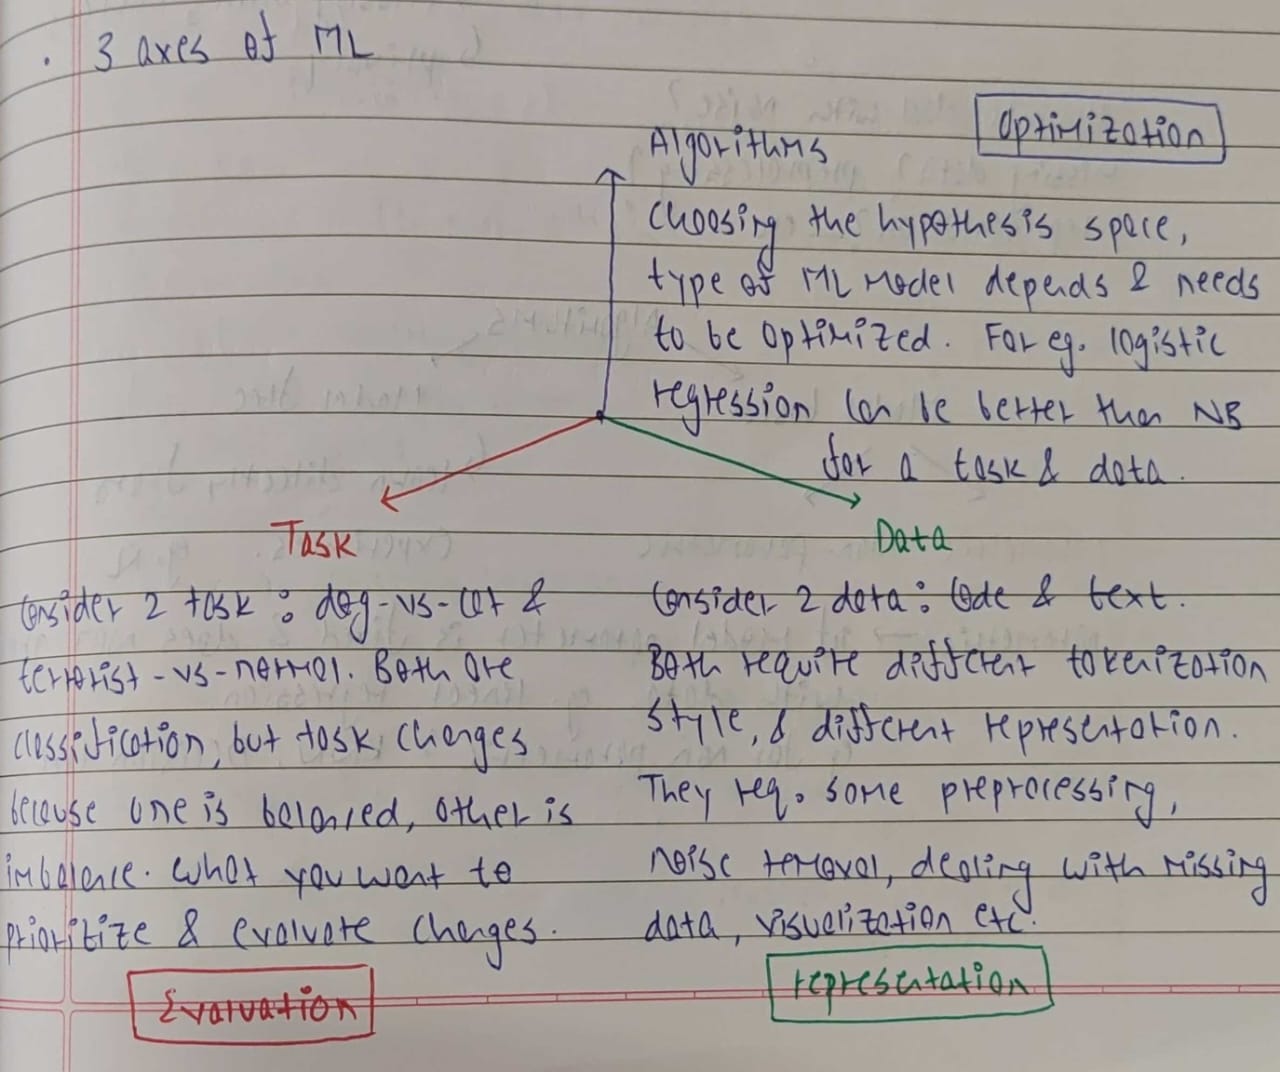 . 3 axes of ML
Optimization
Algorithms
Choosing the hypothesis space,
type of ML Model depends & needs
to be optimized. For eg. logistic
regression can be better than NB
for a task & data.
Task
Consider 2 task : dog-vs-cat &
terrorist-vs-normal. Both are
classification, but task changes
because one is balanced, other is
imbalance. What you want to
prioritize & evaluate changes.
Evaluation
Data
Consider 2 data : Code & text.
Both require different tokenization
style, & different representation.
They req. some preprocessing,
noise removal, dealing with missing
data, visualization etc.
representation